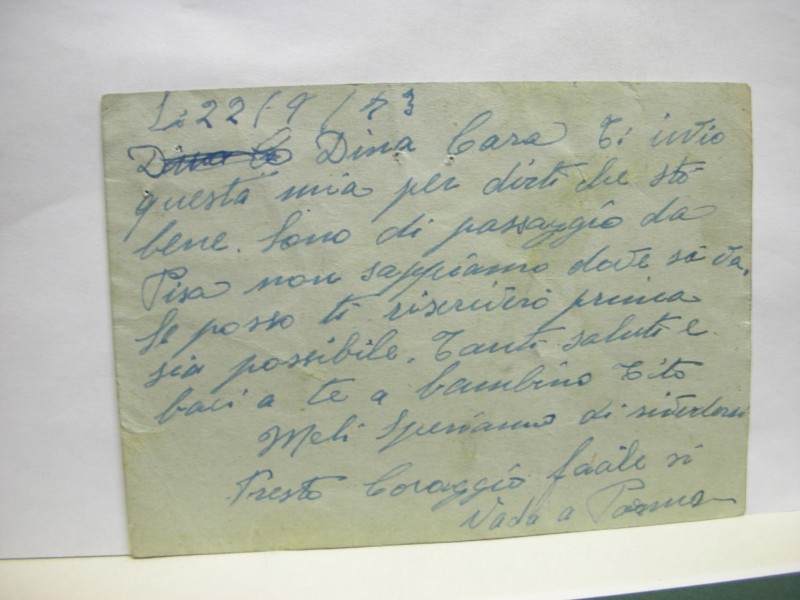 Lì 22/9/43
Dina Cara Ti invio
questa mia per dirti che stò
bene. Sono di passaggio da
Pisa non sappiamo dove si va.
Se posso ti riscriverò prima
sia possibile. Tanti saluti e
baci a te a bambino Tito
Meli Speriamo di rivederci
Presto Coraggio facile si
Vada a Parma